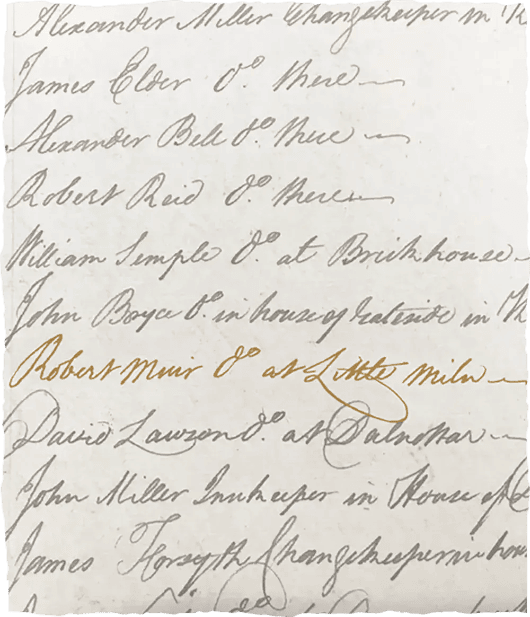 Alexander Miller Changekeeper in
James Elder Do. there
Alexander Bell Do. there
Robert Reid Do. there
William Semple Do. at Brickhouse
John Bryce Do. in house of Gateside in
Robert Muir Do. at Little Miln
David Lawson Do. at Dalnottar
John Miller Innkeeper in House of
James Forsyth Changekeeper in hous